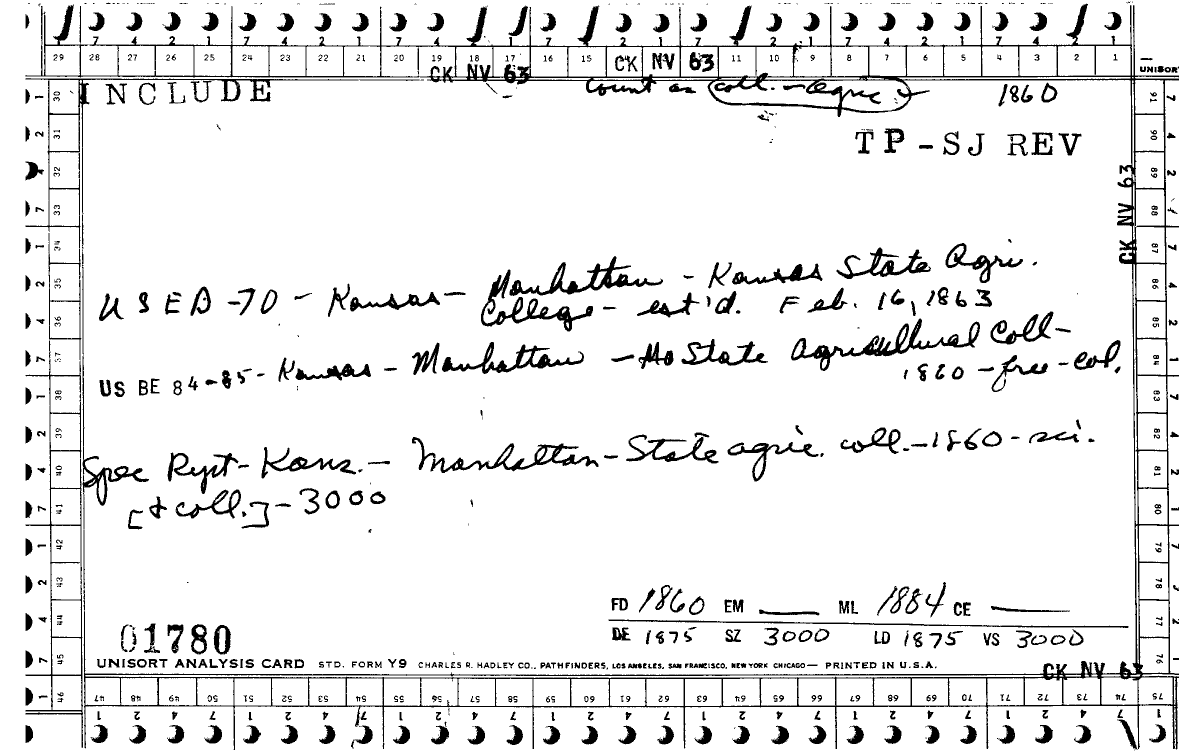 7 4 2 1 7 4 2 1 7 4 2 1 7 4 2 1 7 4 2 1 7 4 2 1 7 4 2 1
29 28 27 26 25 24 23 22 21 20 19 18 17 16 15 11 10 9 8 7 6 5 4 3 2 1
CK NV 63 CK NV 63
UNISORT
INCLUDE count as coll. - agric 1860
TP-SJ REV
CK NV 63
USED-70 - Kansas - Manhattan - Kansas State Agri.
College - est'd. Feb. 16, 1863
US BE 84-85 - Kansas - Manhattan - State Agricultural Coll -
1860 - free - col.
Spec Rept - Kans. - Manhattan - State agric. coll. - 1860 - sci.
[+ coll.] - 3000
FD 1860 EM ____ ML 1884 CE ____
DE 1875 SZ 3000 LD 1875 VS 3000
01780
UNISORT ANALYSIS CARD STD. FORM Y9 CHARLES R. HADLEY CO., PATHFINDERS, LOS ANGELES, SAN FRANCISCO, NEW YORK CHICAGO — PRINTED IN U.S.A.
CK NV 63
47 48 49 50 51 52 53 54 55 56 57 58 59 60 61 62 63 64 65 66 67 68 69 70 71 72 73 74 75
30 31 32 33 34 35 36 37 38 39 40 41 42 43 44 45 46
91 90 89 88 87 86 85 84 83 82 81 80 79 78 77 76